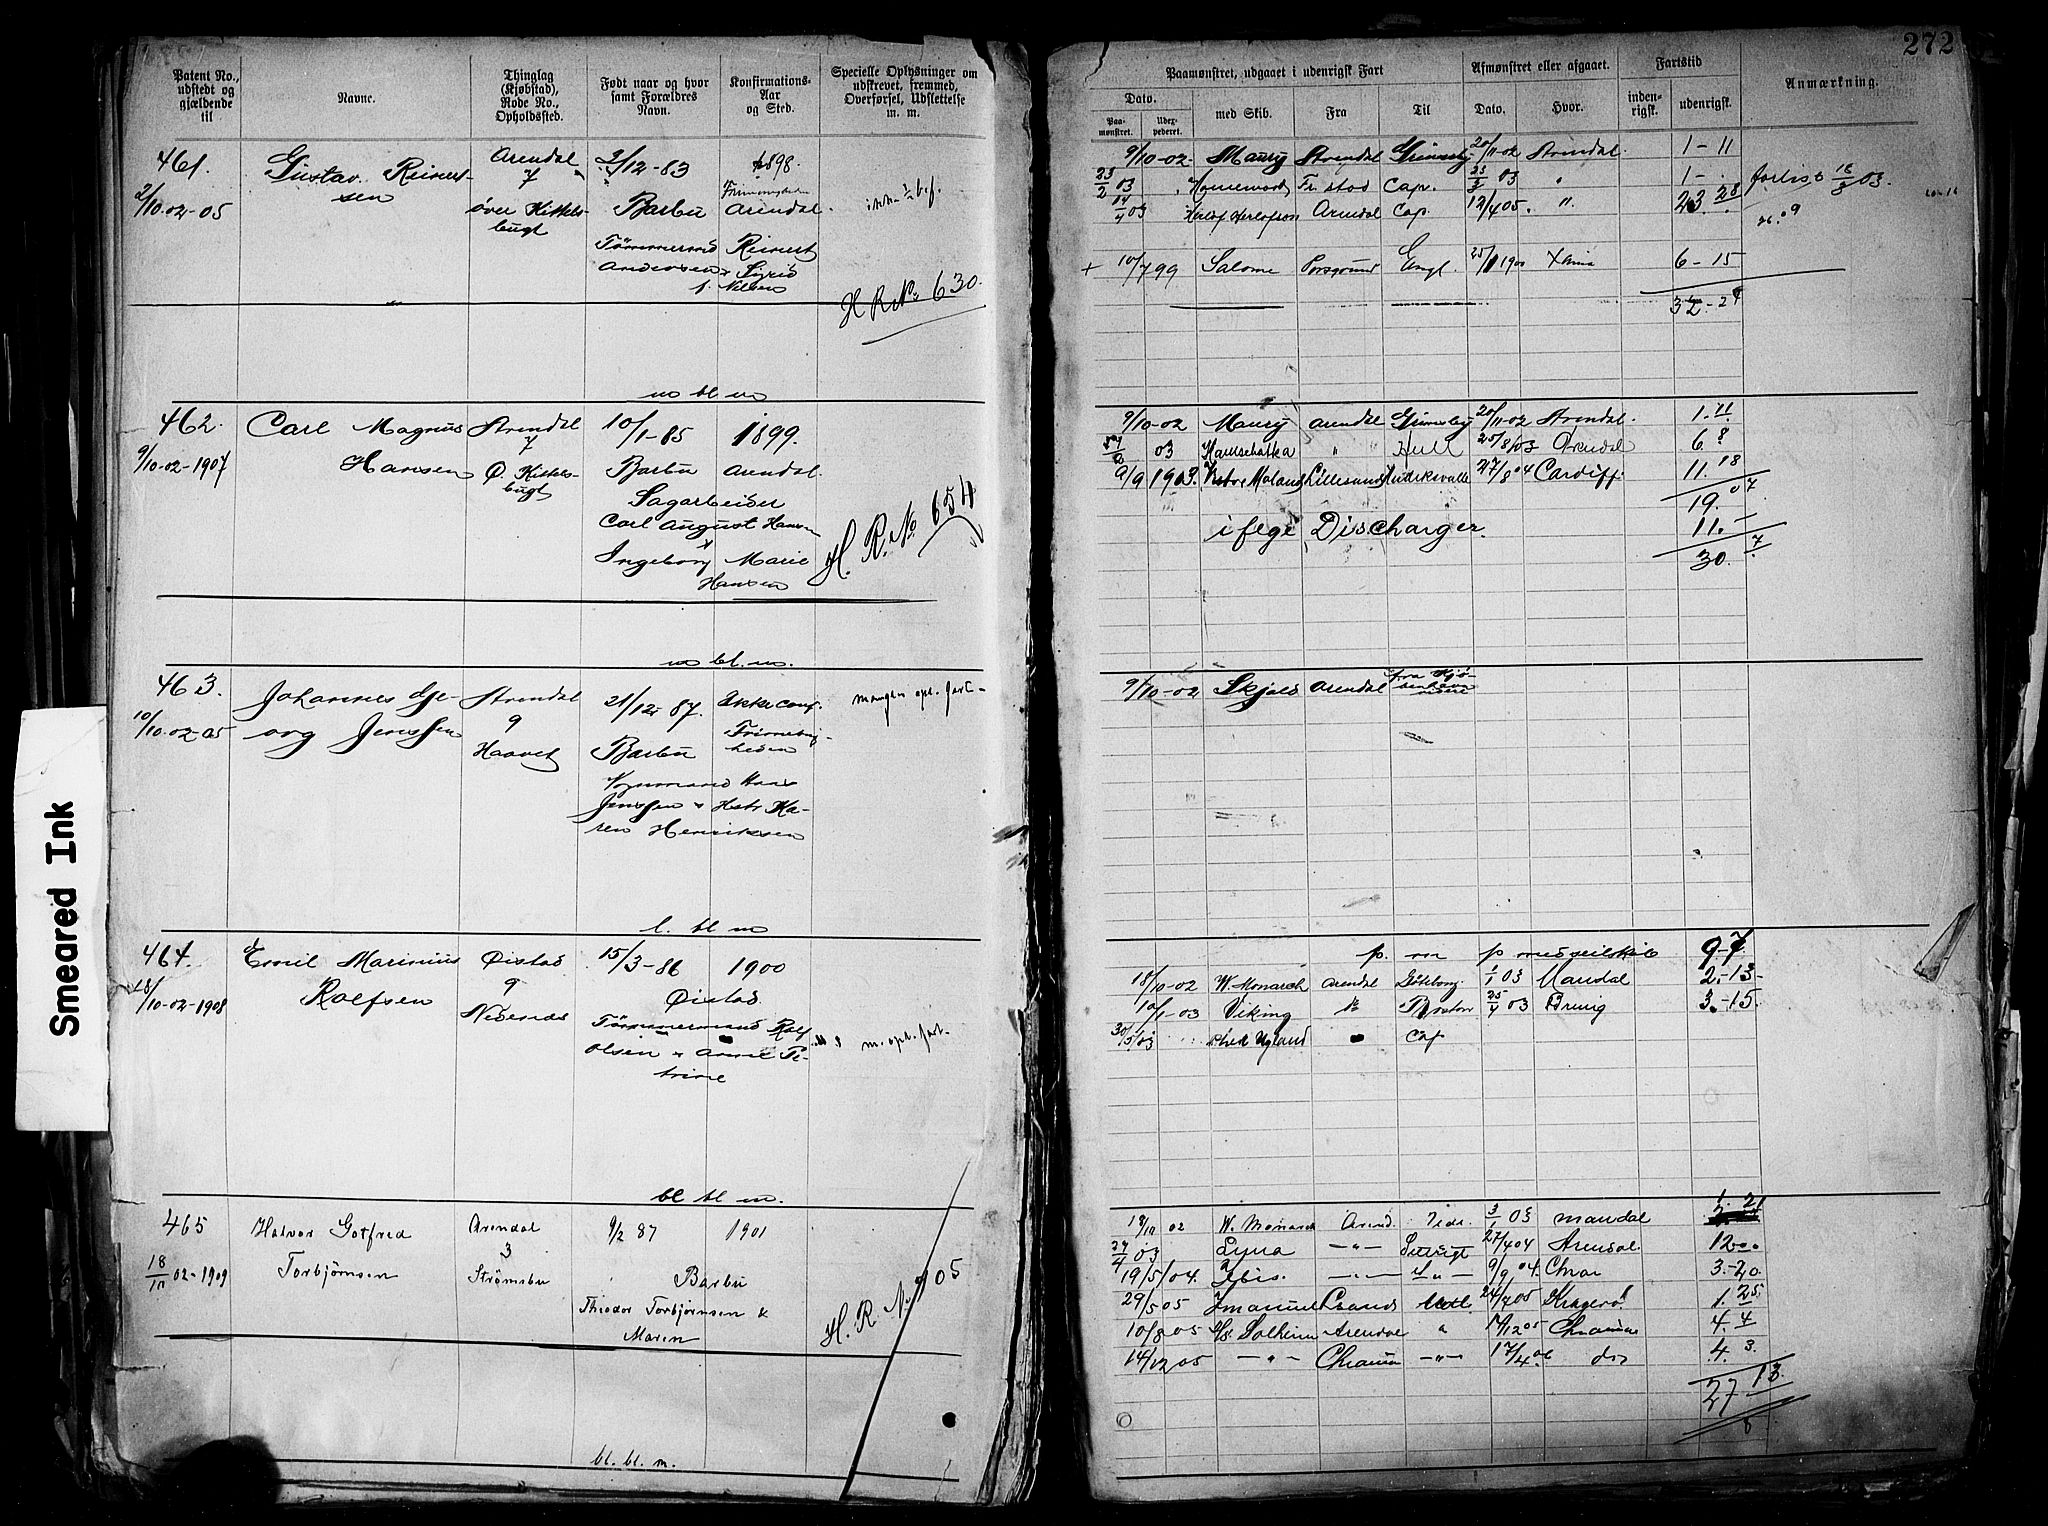 272
Patent No., udstedt og gjældende til
Navne.
Thinglag (Kjøbstad), Rode No., Opholdssted.
Født naar og hvor samt Forældres Navn.
Konfirmations-Aar og Sted.
Specielle Oplysninger om udskrevet, fremmed, Overførsel, Udslettelse m. m.
Paamønstret, udgaaet i udenrigsk Fart
Dato.
Paa-mønstret.
Udex-pederet.
med Skib.
Fra
Til
Afmønstret eller afgaaet.
Dato.
Hvor.
Fartstid
inden-rigsk.
udenrigsk.
Anmærkning.
461.
2/10-02-05
Gustav Reinert-
sen
Arendal
7
øver Kittels-
bugt
2/12-83
Barbu
Tømmermand Reinert
Andersen & Sigrid
f. Nilsen
1898.
Arendal.
H R No 630.
9/10-02. Maury Arendal Grimsby 20/11-02 Arendal. 1-11
23/2 03 Homewood Fr.stad Cap. 03 " 1-
forlist 18/3 03.
14/4 03 Arendal Cap. 12/4 05. " 23 28
+ 10/7 99 Salome Porsgrund Engl. 1900 Xania 6-15
32-24
m bl m
462.
9/10-02-1907
Carl Magnus
Hansen
Arendal
7
Ø. Kittels-
bugt
10/1-85
Barbu
Sagarbeider
Carl August Hansen
Ingeborg Marie
Hansen
1899.
Arendal.
H. R. No 654
9/10-02 Maury Arendal Grimsby 20/11-02 Arendal. 1. 11
03 Kamschatka " Hull 25/8/03 Arendal 6. 8
9/9 1903. Lillesand Hudiksvalle 27/8 04 Cardiff 11. 18
19. 07
iflge Discharger. 11. -
30. 7
m bl. m.
463.
10/10-02-05
Johannes Ge-
org Jenssen
Arendal
9
Haavet
21/12-87.
Barbu
Vognmand Hans
Jenssen & Hstr Ka-
ren Henriksen
Ikke conf.
mangler opl. fart-
9/10-02 Skjold Arendal
l. bl m
464.
18/10-02-1908
Emil Marinius
Rolfsen
Øistad
9
Nedenæs
15/3-86
1900
Øistad
Tømmermand Rolf
Olsen & Anne Pe-
trine
m. opl. fart.
p. m p med seilskib 9-7
18/10-02 W. Monarch Arendal Göteborg 1/1 03 Mandal 2.-13-
10/1-03 Viking Boston 25/4 03 3.-15.
30/5/03 Ugland Cap
bl bl m.
465
18/10 02-1909
Halvor Gotfred
Torbjørnsen
Arendal
3
Strømsbu
9/2 87
1901
Barbu
Theodor Torbjørnsen &
Maren
H. R No 905
18/10 02 W. Monarch Arend. 3/1 03 Mandal
03 Lyna -"- 27/4 04 Arendal 12
19/5/04. Ibis. -"- -"- 9/9 04. 3.-20.
29/5 05 Imanuel 24/7 05 Kragerø 1. 25
10/8 05 Solheim Arendal " 14/12 05 4. 4
14/12 05 -"- -"- 17/4 06 do 4. 3.
27 13
bl. bl. m.
Smeared Ink